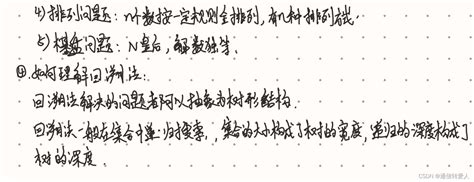 4) 排列问题: n个数按一定规则全排列, 有几种排列方式.
5) 棋盘问题: N皇后, 解数独等.
④ 如何理解回溯法:
回溯法解决的问题都可以抽象为树形结构.
回溯法一般在集合中递归搜索, 集合的大小构成了树的宽度, 递归的深度构成了
树的深度.
CSDN @通信转爱人